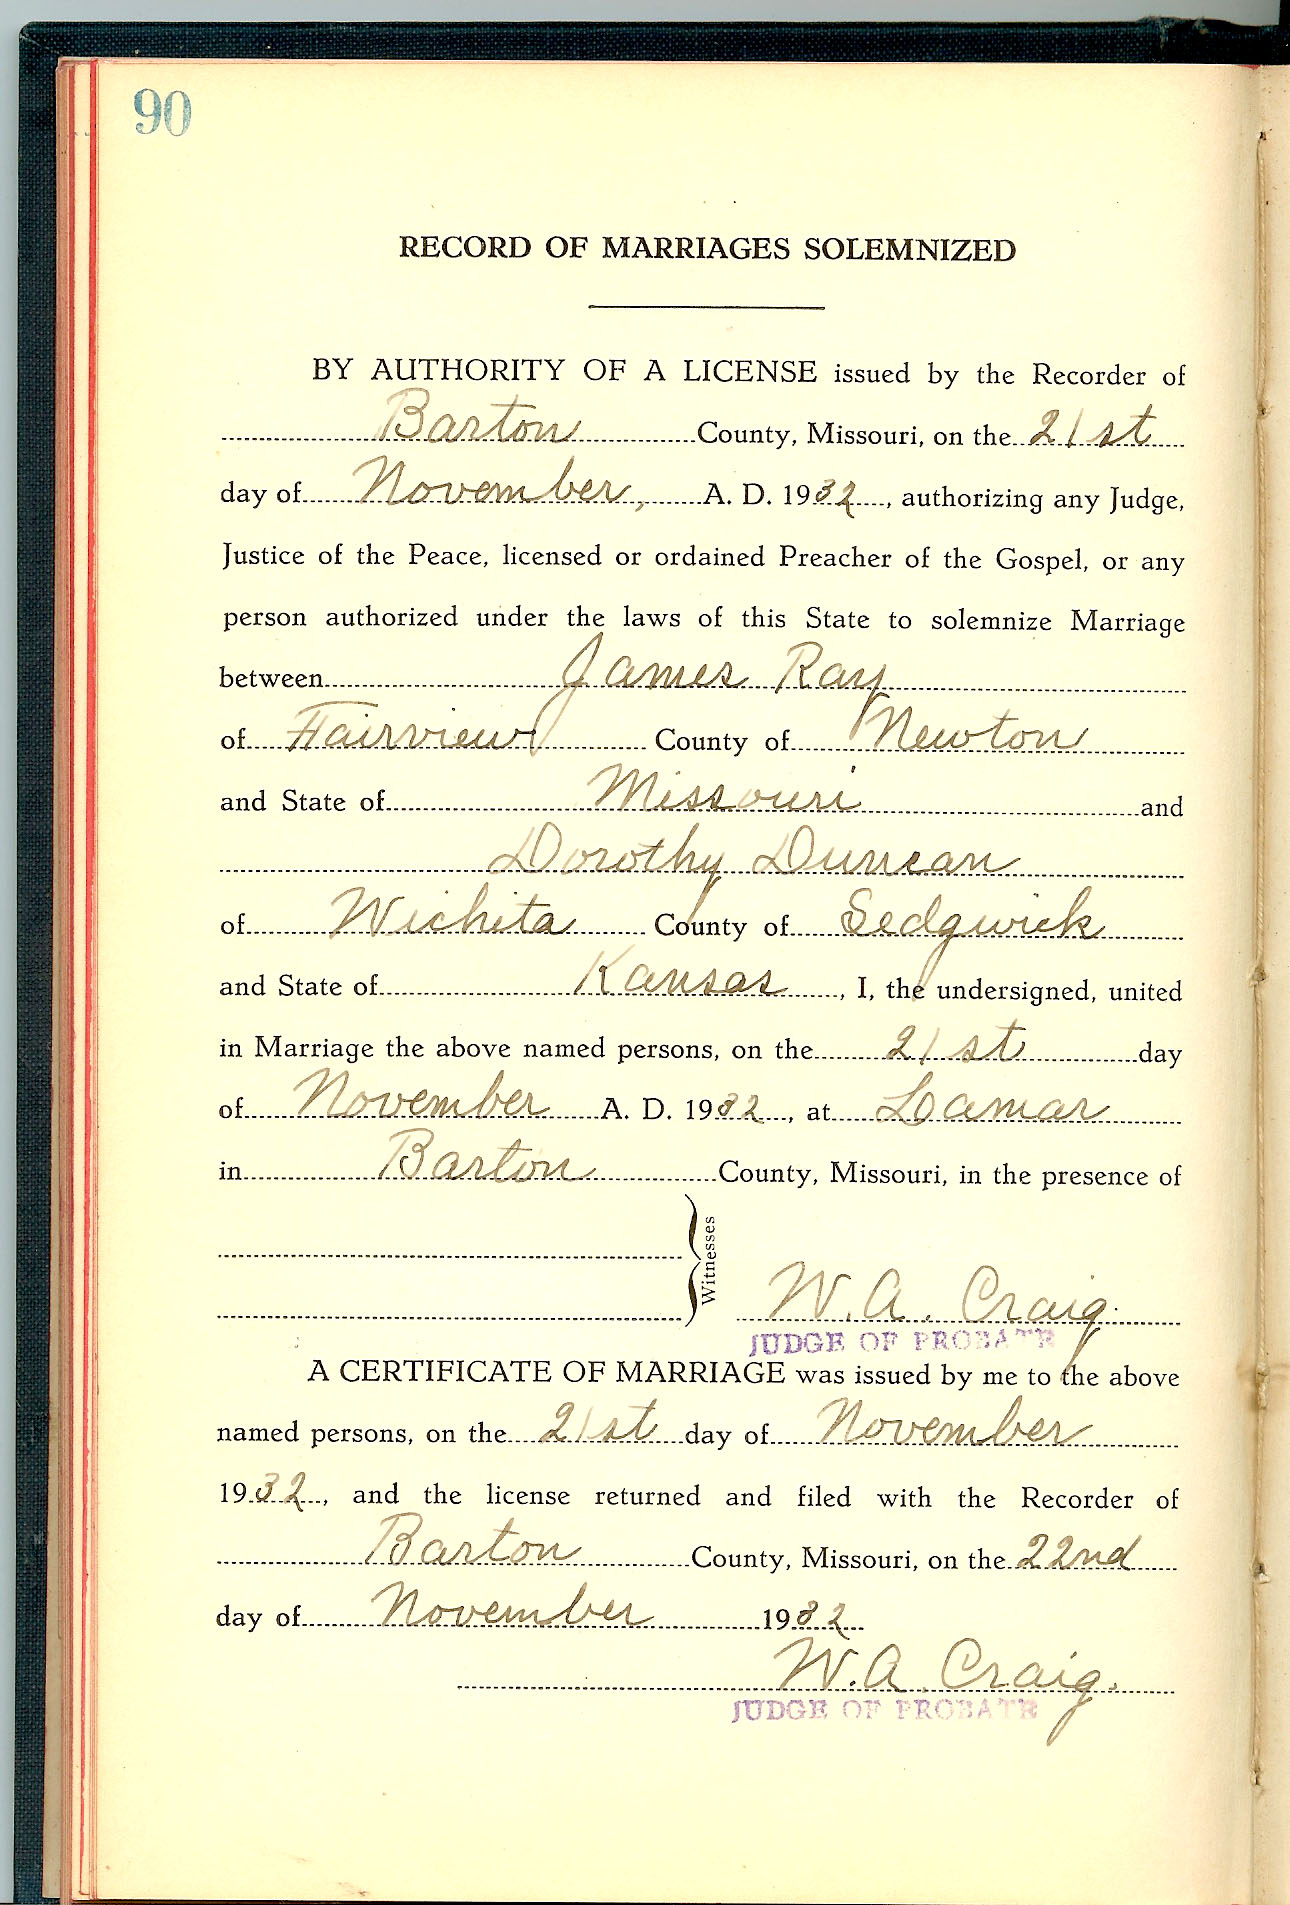 90
RECORD OF MARRIAGES SOLEMNIZED
BY AUTHORITY OF A LICENSE issued by the Recorder of
Barton County, Missouri, on the 21st
day of November, A. D. 1932, authorizing any Judge,
Justice of the Peace, licensed or ordained Preacher of the Gospel, or any
person authorized under the laws of this State to solemnize Marriage
between James Ray
of Fairview County of Newton
and State of Missouri and
Dorothy Duncan
of Wichita County of Sedgwick
and State of Kansas, I, the undersigned, united
in Marriage the above named persons, on the 21st day
of November A. D. 1932, at Lamar
in Barton County, Missouri, in the presence of
Witnesses
W. A. Craig.
JUDGE OF PROBATE
A CERTIFICATE OF MARRIAGE was issued by me to the above
named persons, on the 21st day of November
1932, and the license returned and filed with the Recorder of
Barton County, Missouri, on the 22nd
day of November 1932
W. A. Craig.
JUDGE OF PROBATE